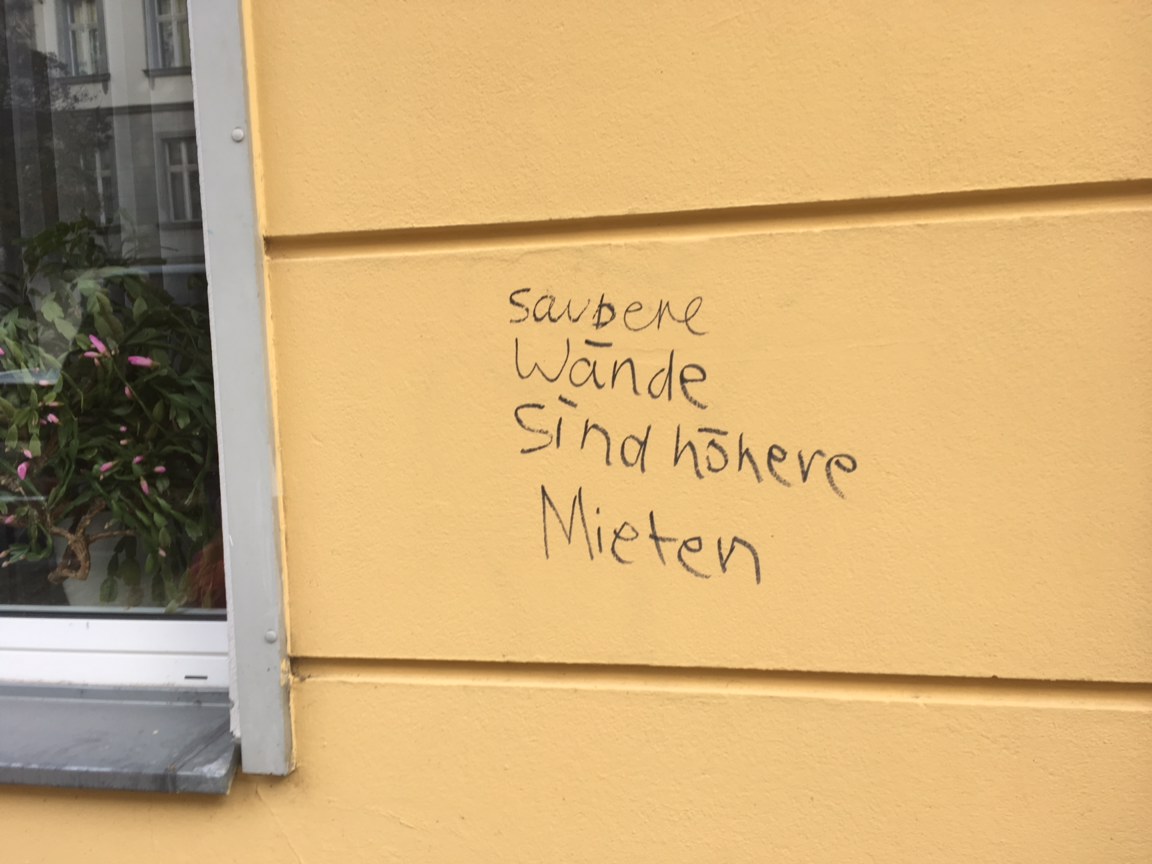 saubere
Wände
Sind höhere
Mieten